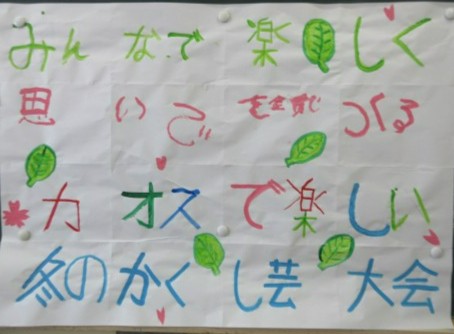 みんなで楽しく
思いでを全員でつくる
カオスで楽しい
冬のかくし芸大会